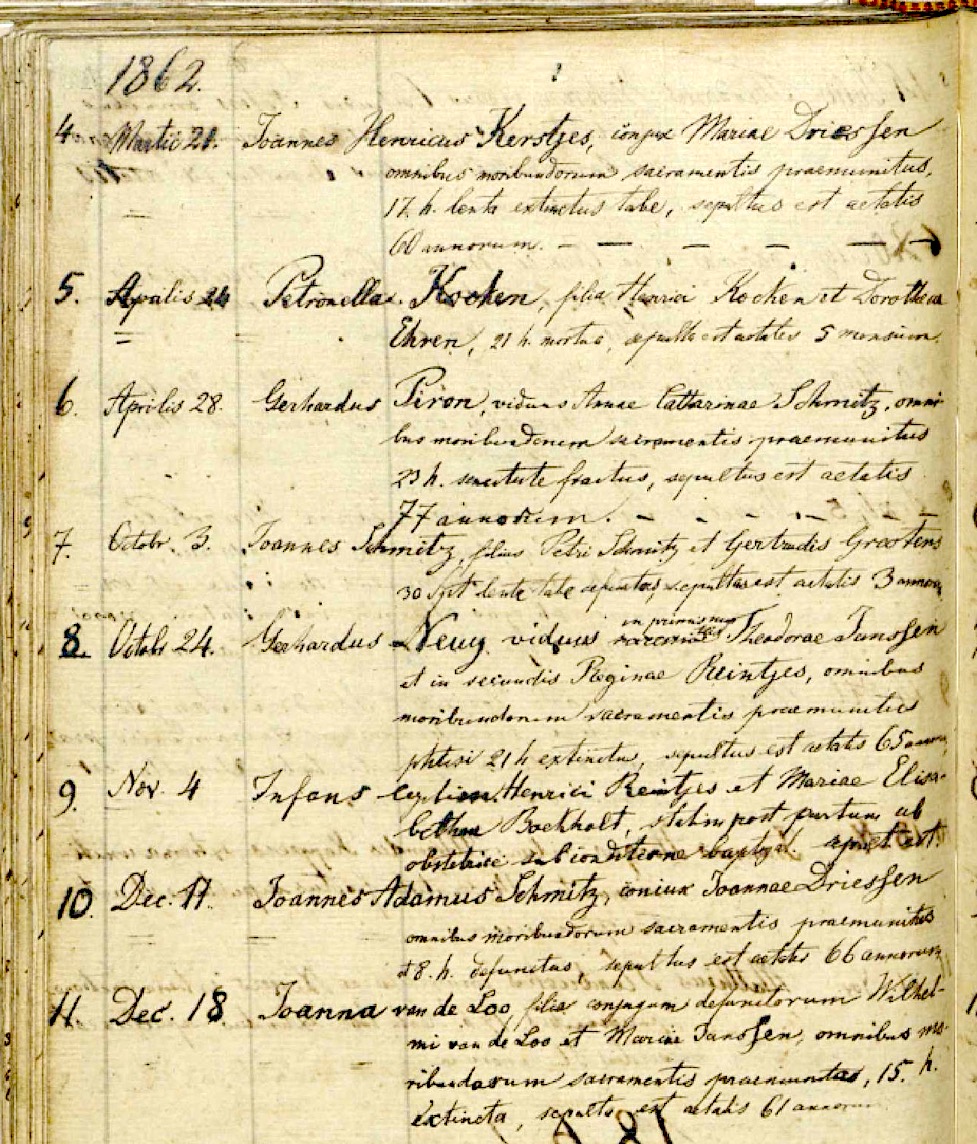 1862.
4. Martii 21. Joannes Henricus Kerstjes, conjux Mariae Driessen
omnibus moribundorum sacramentis praemunitus,
17. h. lenta extinctus tabe, sepultus est aetatis
60 annorum. - - - - - -
5. Aprilis 24 Petronella Kocken, filia Henrici Kocken et Dorothea
Ehren, 21 h. mortua, sepulta est aetatis 5 mensium.
6. Aprilis 28. Gerhardus Piron, viduus Annae Catharinae Schmitz, omni-
bus moribundorum sacramentis praemunitus
23 h. senectute fractus, sepultus est aetatis
77 annorum. - - - - - -
7. Octobr. 3. Joannes Schmitz, filius Petri Schmitz et Gertrudis Grootens
30 Spt lenta tabe sepultus est aetatis 3 annor.
8. Octobr 24. Gerhardus Neuy viduus in primis Theodorae Janssen
et in secundis Reginae Reintjes, omnibus
moribundorum sacramentis praemunitus
phtisi 21 h extinctus, sepultus est aetatis 65 annor.
9. Nov. 4 Infans Henrici Reintjes et Mariae Elisa-
bethae Bockholt, statim post partum ab
obstetrice sub conditione baptiz. sepult est.
10. Dec. 11. Joannes Adamus Schmitz, coniux Joannae Driessen
omnibus moribundorum sacramentis praemunitus
d 8. h. defunctus, sepultus est aetatis 66 annorum
11. Dec. 18. Joanna van de Loo, filia conjugum defunctorum Wilhel-
mi van de Loo et Mariae Janssen, omnibus mo-
ribundorum sacramentis praemunita, 15. h.
extincta, sepulta est aetatis 61 annorum